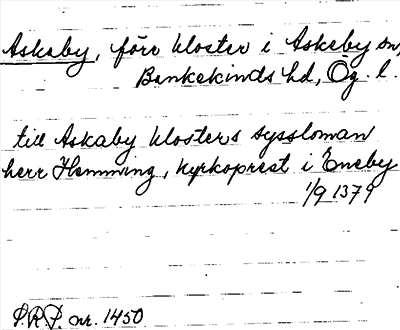 Askaby, förr kloster i Askeby sn,
Bankekinds hd, Ög. l.
till Askaby klosters syssloman
herr Hemming, kyrkoprest i Eneby
1/9 1379
S.R.P. nr. 1450